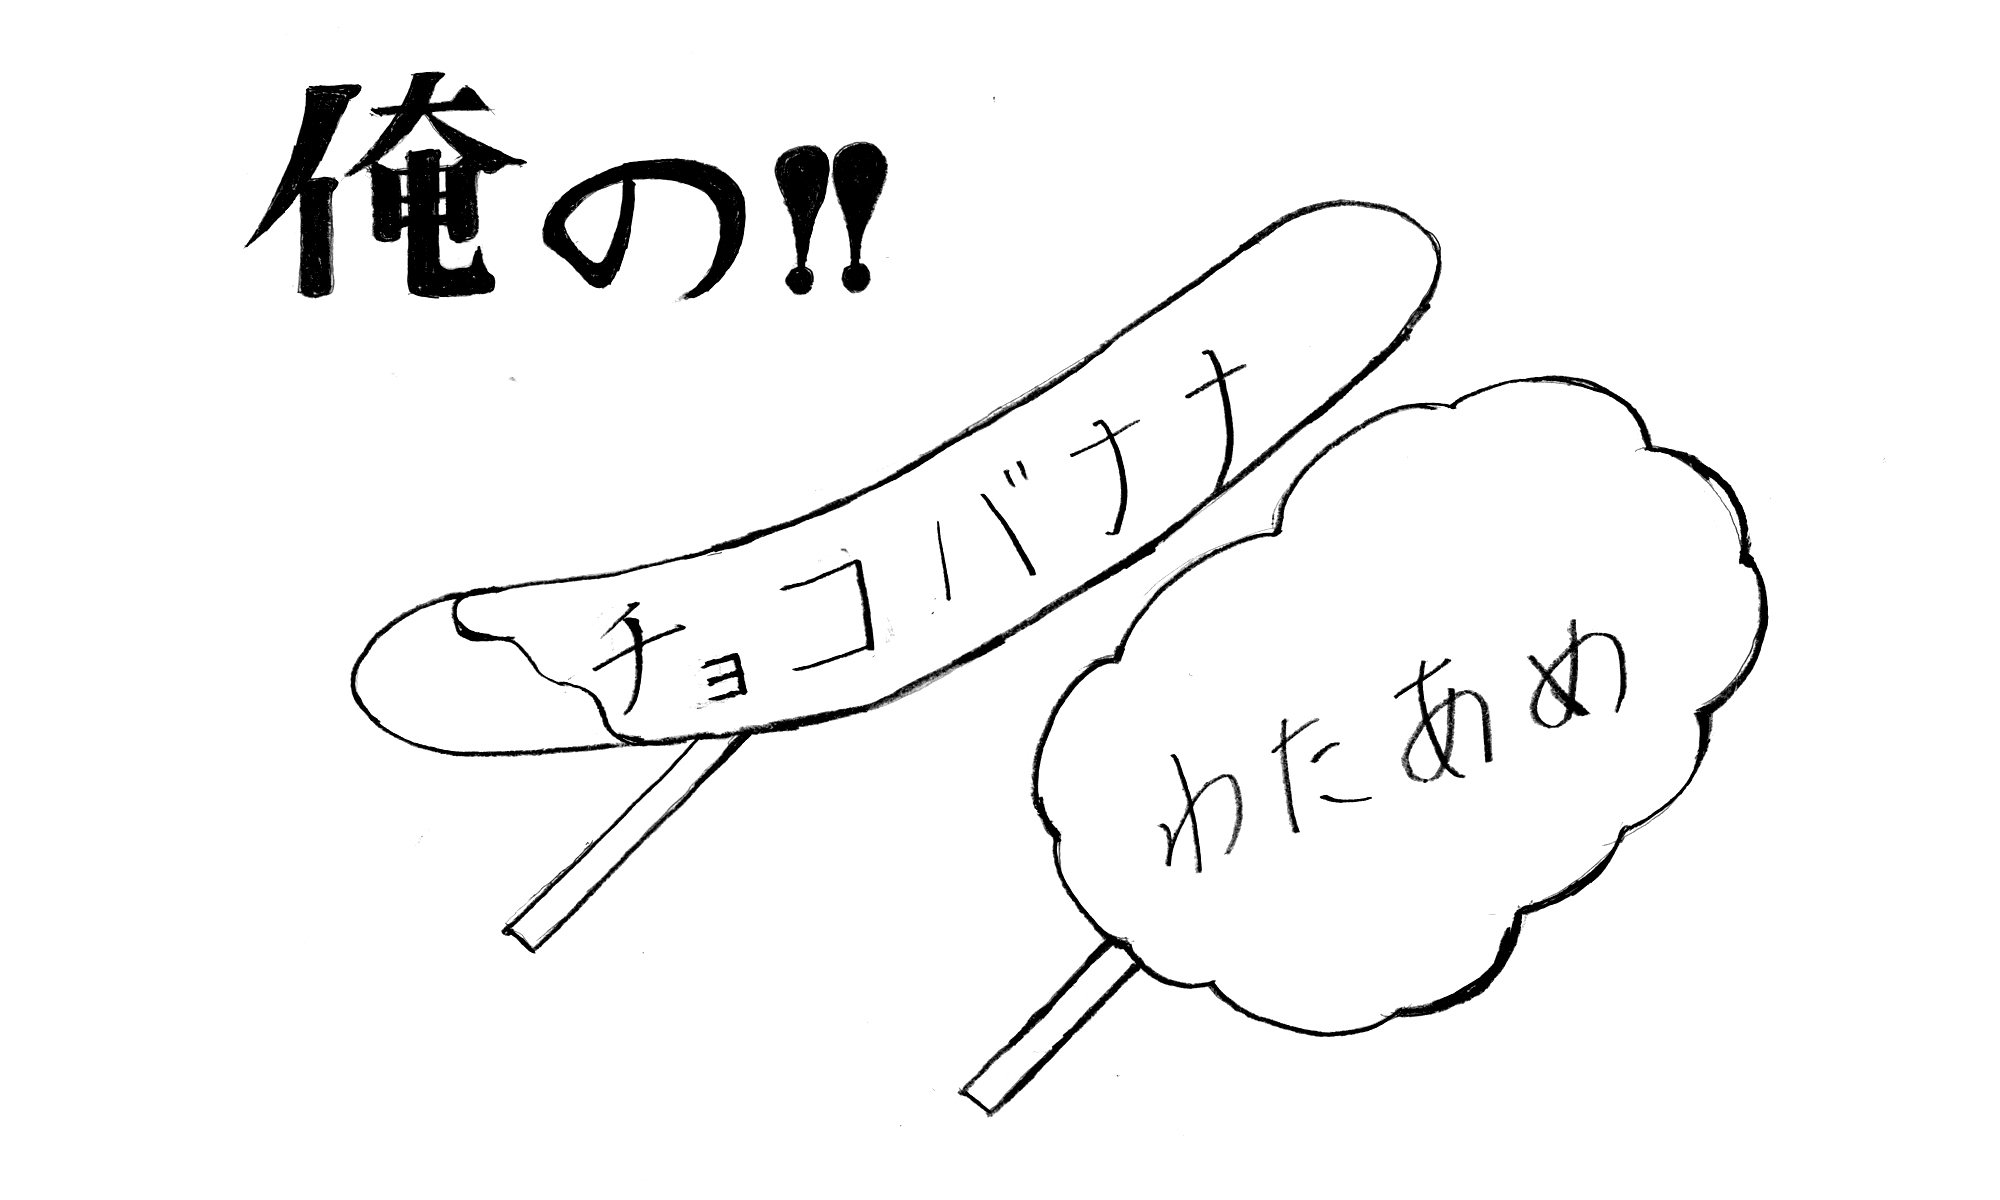 俺の!!
チョコバナナ
わたあめ